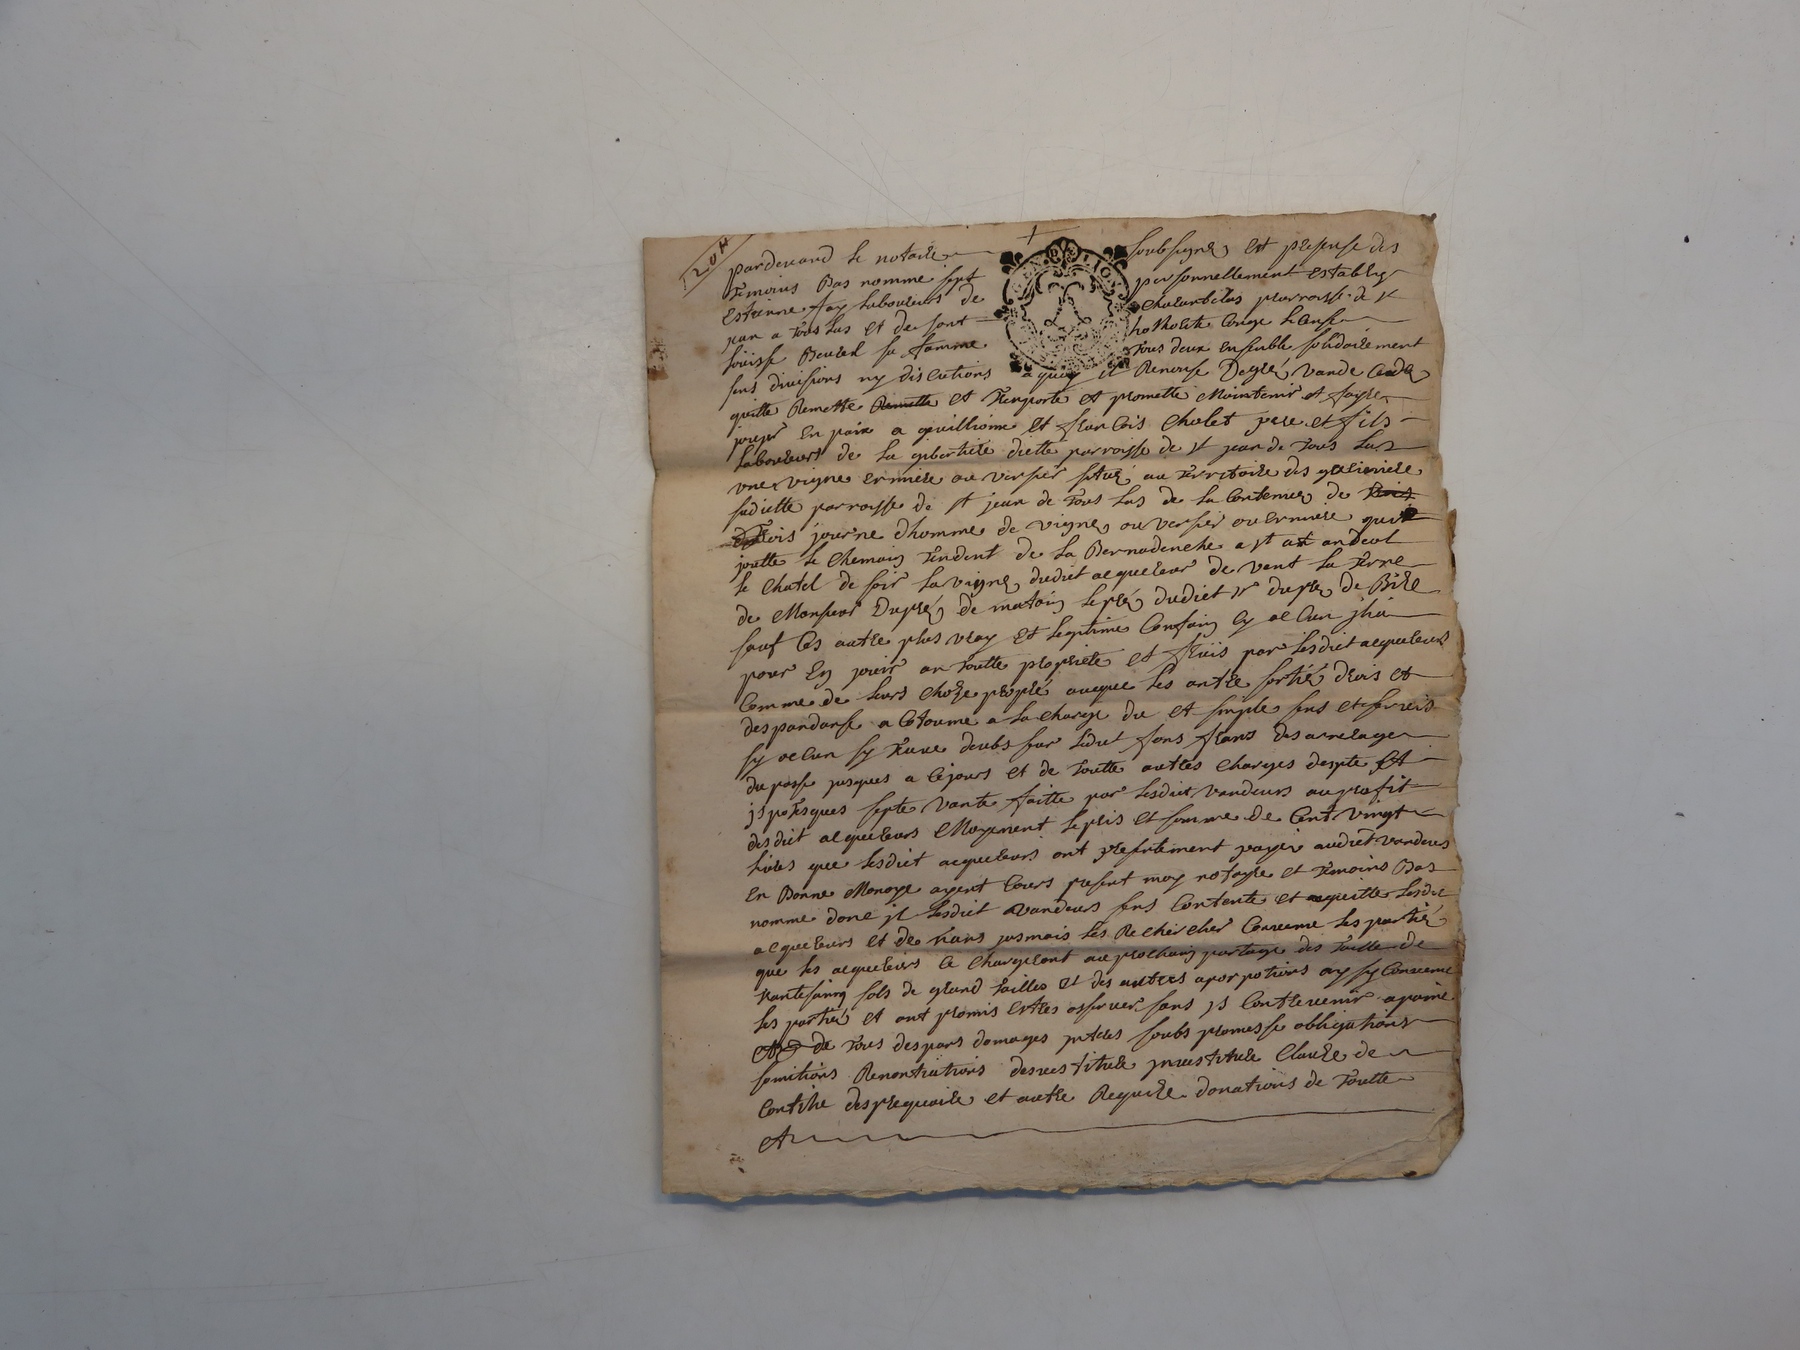 204
pardevand le notaire soubsigné et presense des
temoins Bas nomme sept personnellement establis
Estienne fay laboureurs de parroisse de st
jean a tous las et de sont
Loüise sa famme tous deux ensemble solidairement
sens divisions ny discutions a quoy il Renonse De gré vande cede
quitte Remette Remette et Tenporte et promette Maintenir et fayre
jouyr en paix a guilliome et francois Cholet pere et fils
Laboureurs de la ditte parroisse de st jean de tous las
vne vigne ermiere ou versier situé au territoire des
sudiette parroisse de st jean de tous las de la Contenue de trois
trois journe dhomme de vigne ou versier ou ermiere qui
joutte le Chemain tendent de la Bernadenche a st andeol
le Chatel de soir la vigne dudict acquereur de vent la terre
de Monsieur Dupré de matain le pré dudict sr dupré de Bize
sauf ces autre plus vray et legitime Confain sy ocCun jhia
pour en jouir an toutte propriete et fruis par lesdict acquereurs
Comme de leurs choze propre avecque les antre sortié drois et
despandanse a Cotoume a la charge du et simple sens et servis
sy ocCun sy treuve deubs sur ledict fons frans des arrelage
du passe jusques a Cejours et de toutte autres charges despte et
jpotesques septe vante faitte par lesdict vandeurs au profit
desdict acquereurs Moyenent le pris et somme de Cent vingt
livres que lesdict acquereurs ont presentement payer audict vandeurs
en Bonne Monoye ayent Cours present moy notayre et temoins Bas
nomme donc jl lesdict vandeurs sens Contente et acquitte lesdict
acquereurs et de nans jasmais les Rechercher Convenu les partié
que les acquereurs ce chargeront au prochain partage des taille de
trantesainq sols de grand tailles et des autres a porpotions ay sy Convenu
les partié et ont promis entres osserver sans js Contrevenir apaine
de tous despans domages jntres soubs promesse obligations
somitions Renontiations clauze de
Contitue desprequaire et autre Requize donations de toutte
et